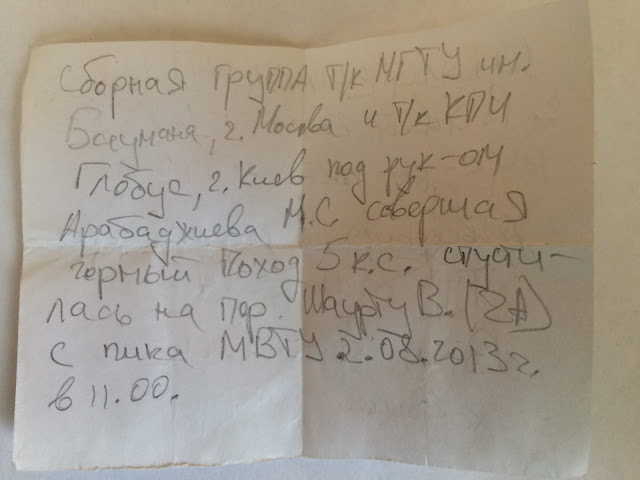 Сборная группа т/к МГТУ им.
Баумана, г. Москва и т/к КПИ
Глобус, г. Киев под рук-ом
Арабаджиева М.С. совершая
горный поход 5 к.с. спусти-
лась на пер. Шаурту В. (2А)
с пика МВТУ 2.08.2013 г.
в 11.00.